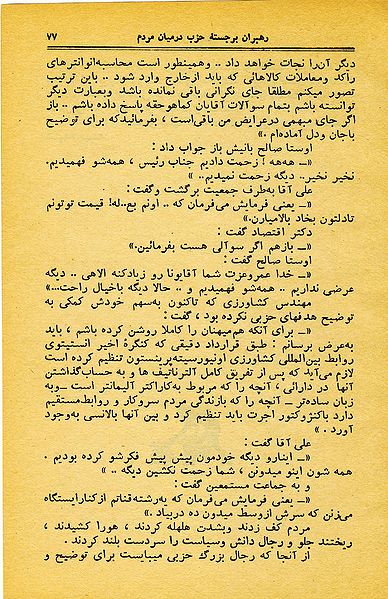 رهبران برجستهٔ حزب درمیان مردم ۷۷
دیگر آن‌را نجات خواهد داد .. وهمینطور است محاسبهٔ‌انوانترهای
راکد ومعاملات کالاهائی که باید ازخارج وارد شود .. باین ترتیب
تصور میکنم مطلقا جای نگرانی باقی نمانده باشد وبعبارت دیگر
توانسته باشم بتمام سوآلات آقایان کماهوحقه پاسخ داده باشم .. باز
اگر جای مبهمی درعرایض من باقی‌است ، بفرمائیدکه برای توضیح
باجان ودل آماده‌ام .»
اوستا صالح بانیش باز جواب داد :
«ـ هه‌هه ! زحمت دادیم جناب رئیس ، همه‌شو فهمیدیم.
نخیر نخیر.. دیگه زحمت نمیدیم.. »
علی آقا به‌طرف جمعیت برگشت وگفت :
«ـ یعنی فرمایش می‌فرمان که .. اونم بع..له! قیمت توتونم
تادلتون بخاد بالامیارن.»
دکتر اقتصاد گفت :
«ـ بازهم اگر سوآلی هست بفرمائین.»
اوستا صالح گفت :
«ـ خدا عمروعزت شما آقایونا رو زیادکنه الاهی .. دیگه
عرضی نداریم .. همه‌شو فهمیدیم و .. حالا دیگه باخیال راحت...»
مهندس کشاورزی که تاکنون به‌سهم خودش کمکی به
توضیح هدفهای حزبی نکرده بود ، گفت :
«ـ برای آنکه هم‌میهنان را کاملا روشن کرده باشم ، باید
به‌عرض برسانم : طبق قرارداد دقیقی که کنگرهٔ اخیر انستیتوی
روابط بین‌المللی کشاورزی اونیورسیته‌پرینستون تنظیم کرده است
لازم می‌آید که پس از تفریق کامل آلترناتیف ها و به حساب‌گذاشتن
آنها در دارائی ، آنچه را که مربوط به‌کاراکتر آلیمانتر است ـ‌وبه
زبان ساده‌تر ـ آنچه را که بازندگی مردم سروکار و روابط‌مستقیم
دارد باکنژوکتور اجرت باید تنظیم کرد و بین آنها بالانسی به‌وجود
آورد . »
علی آقا گفت :
«ـ اینارو دیگه خودمون پیش پیش فکرشو کرده بودیم .
همه شون اینو میدونن ، شما زحمت نکشین دیگه .. »
و به جماعت مستمعین گفت :
«ـ یعنی فرمایش می‌فرمان که به‌رشته‌قناتم ازکنارایستگاه
می‌زنن که سرش ازوسط میدون ده دربیاد .»
مردم کف زدند وبشدت هلهله کردند ، هورا کشیدند ،
ریختند جلو و رجال دانش وسیاست را سردست بلند کردند .
از آنجا که رجال بزرگ حزبی میبایست برای توضیح و